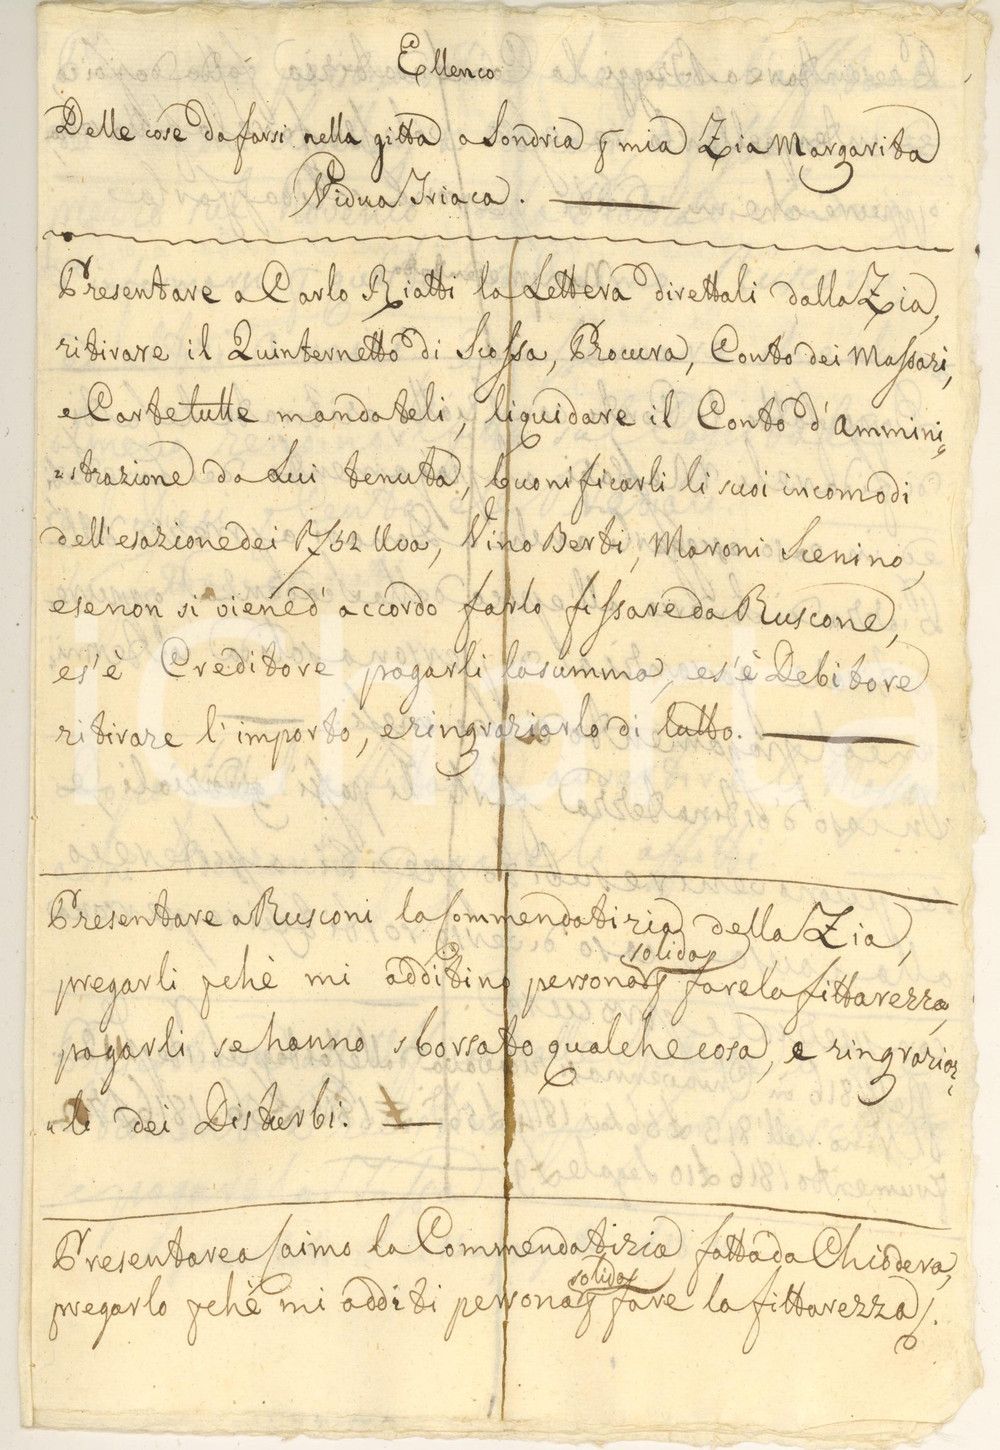 Ellenco
Delle cose da farsi nella gitta a Sondria p mia Zia Margarita
Vidua Triaca.
Presentare a Carlo Riatti la Lettera direttali dalla Zia,
ritirare il Quinternetto di Scossa, Procura, Conto dei Massari,
e Carte tutte mandateli, liquidare il Conto d'ammini
strazione da Lui tenuta, buonificarli li suoi incomodi
dell'esazione dei Uva, Vino Berti, Maroni Scenino,
e se non si viene d'accordo farlo fissare da Ruscone,
e s'è Creditore pagarli la summa, e s'è Debitore
ritirare l'importo, e ringraziarlo di tutto.
Presentare a Rusconi la Commendatizia della Zia,
pregarli pchè mi additino persona solida p fare la fittarezza,
pagarli se hanno sborsato qualche cosa, e ringraziar
li dei Disturbi.
Presentare a Saimo la Commendatizia fatta da Chiodera,
pregarlo pchè mi additi persona solida p fare la fittarezza.